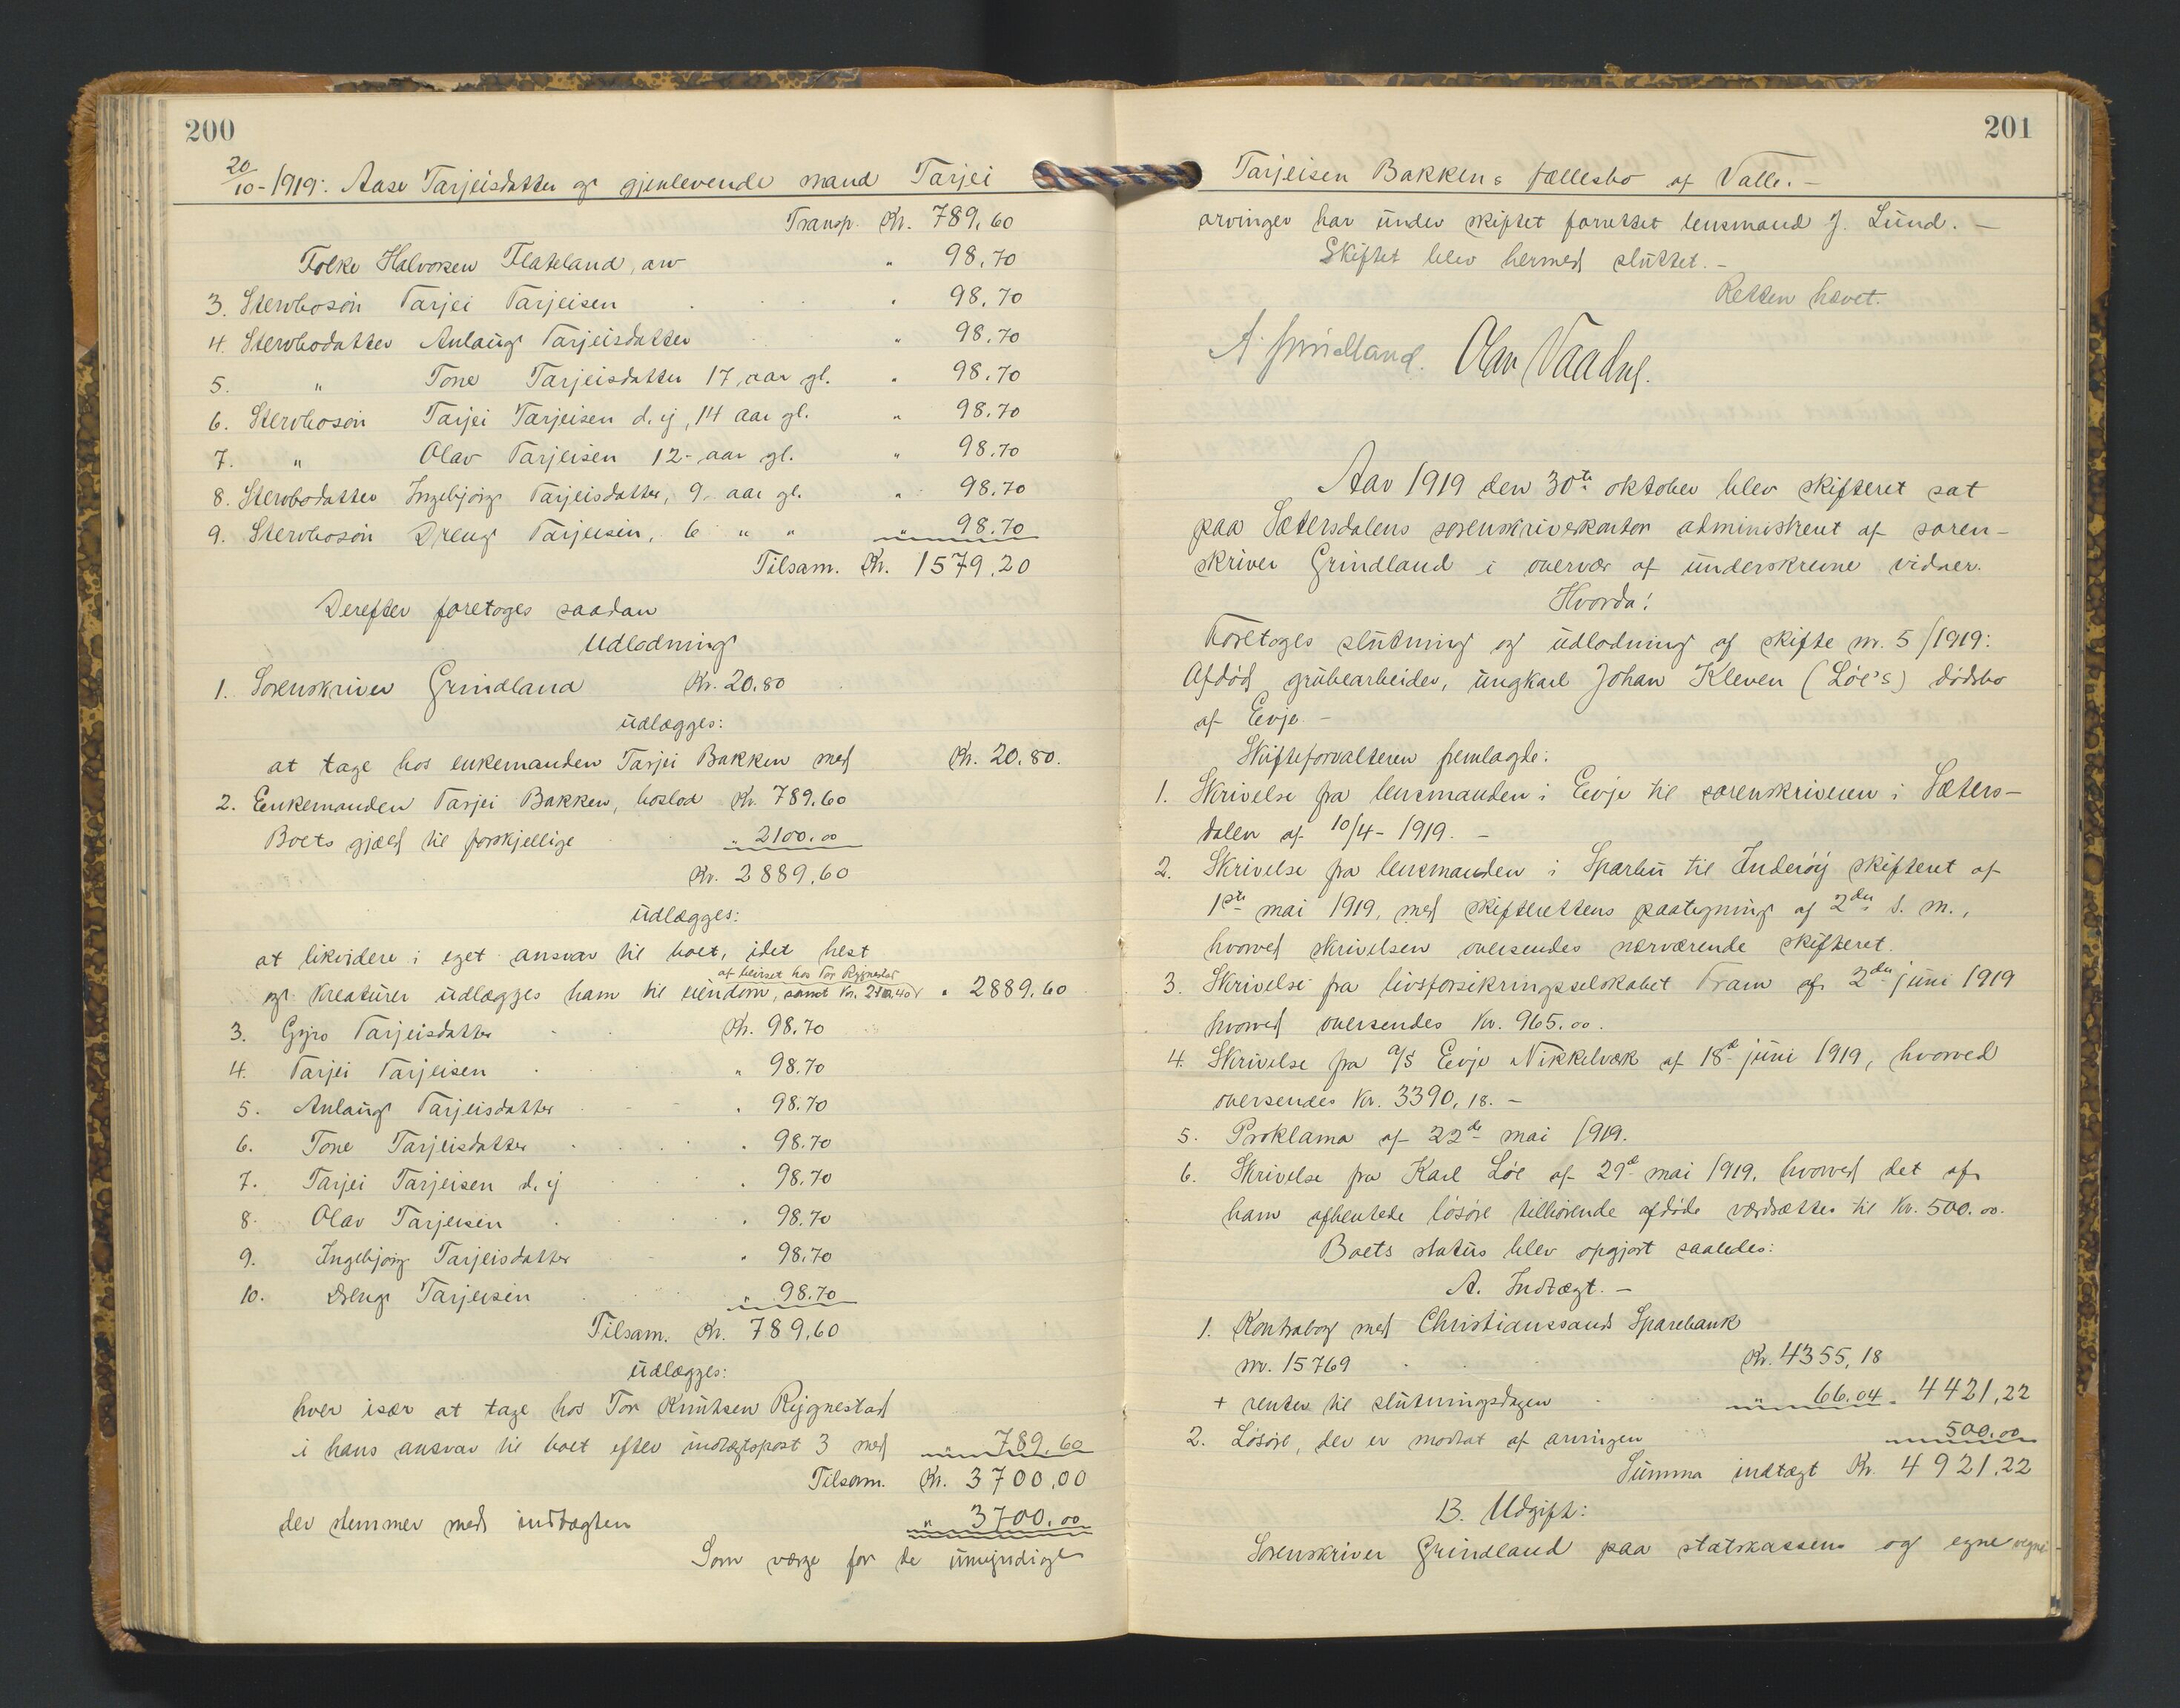 200
20/10-1919: Aase Tarjeisdatter og gjenlevende mand Tarjei
Transp. Kr. 789.60
Folke Halvorsen Flateland, arv " 98.70
3. Stervbosøn Tarjei Tarjeisen " 98.70
4. Stervbodatter Anlaug Tarjeisdatter " 98.70
5. " Tone Tarjeisdatter 17 aar gl. " 98.70
6. Stervbosøn Tarjei Tarjeisen d. y, 14 aar gl. " 98.70
7. " Olav Tarjeisen 12 - aar gl. " 98.70
8. Stervbodatter Ingebjørg Tarjeisdatter, 9. aar gl. " 98.70
9. Stervbosøn Dreng Tarjeisen, 6 " " " 98.70
Tilsam. Kr. 1579.20
Derefter foretoges saadan
Udlodning
1. Sorenskriver Grindland Kr. 20.80
udlægges:
at tage hos enkemanden Tarjei Bakken med Kr. 20.80.
2. Enkemanden Tarjei Bakken, boslod Kr. 789.60
Boets gjæld til forskjellige " 2100.00
Kr. 2889.60
udlægges:
at likvidere i eget ansvar til boet, idet hest
af beløpet hos Tor Rygnestad
og kreaturer udlægges ham til eiendom, samt Kr. " 2889.60
3. Gyro Tarjeisdatter Kr. 98.70
4. Tarjei Tarjeisen " 98.70
5. Anlaug Tarjeisdatter " 98.70
6. Tone Tarjeisdatter " 98.70
7. Tarjei Tarjeisen d. y " 98.70
8. Olav Tarjeisen " 98.70
9. Ingebjørg Tarjeisdatter " 98.70
10. Dreng Tarjeisen " 98.70
Tilsam. Kr. 789.60
udlægges:
hver især at tage hos Tor Knutsen Rygnestad
i hans ansvar til boet efter indtægtspost 3 med " 789.60
Tilsam. Kr. 3700.00
der stemmer med indtægten " 3700.00
Som værge for de umyndige
201
Tarjeisen Bakkens fællesbo af Valle. -
arvinger har under skiftet forrettet lensmand J. Lund. -
Skiftet blev hermed sluttet. -
Retten hævet.
A. Grindland. Olav Vaadal.
Aar 1919 den 30te oktober blev skifteret sat
paa Sætersdalens sorenskriverkontor administrert af soren-
skriver Grindland i overvær af underskrevne vidner.
Hvorda:
Foretoges slutning og udlodning af skifte nr. 5/1919:
Afdød grubearbeider, ungkarl Johan Kleven (Løe's) dødsbo
af Evje. -
Skifteforvalteren fremlagde:
1. Skrivelse fra lensmanden i Evje til sorenskriveren i Sæters-
dalen af 10/4 - 1919. -
2. Skrivelse fra lensmanden i Sparbu til Inderøy skifteret af
1ste mai 1919, med skifterettens paategning af 2den s. m.,
hvorved skrivelsen oversendes nærværende skifteret.
3. Skrivelse fra livsforsikringsselskabet Fram af 2den juni 1919
hvorved oversendes Kr. 965.00.
4. Skrivelse fra A/S Evje Nikkelverk af 18de juni 1919, hvorved
oversendes Kr. 3390,18. -
5. Proklama af 22de mai 1919.
6. Skrivelse fra Karl Løe af 29de mai 1919, hvorved det af
ham afhentede løsøre tilhørende afdøde værdsættes til Kr. 500.00.
Boets status blev opgjort saaledes:
A. Indtægt. -
1. Kontrabog med Christianssands Sparebank
nr. 15769 Kr. 4355,18
+ renter til slutningsdagen " 66.04 " 4421,22
2. Løsøre, der er modtat af arvingen 500.00
Summa indtægt Kr. 4921.22
B. Udgift:
Sorenskriver Grindland paa statskassens og egne vegne